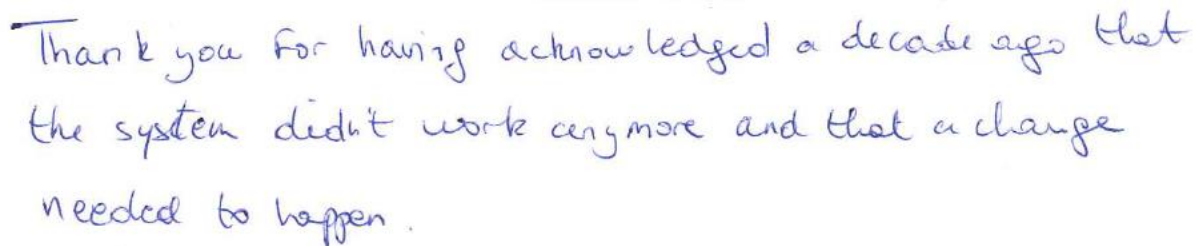 Thank you for having acknowledged a decade ago that
the system didn't work anymore and that a change
needed to happen.